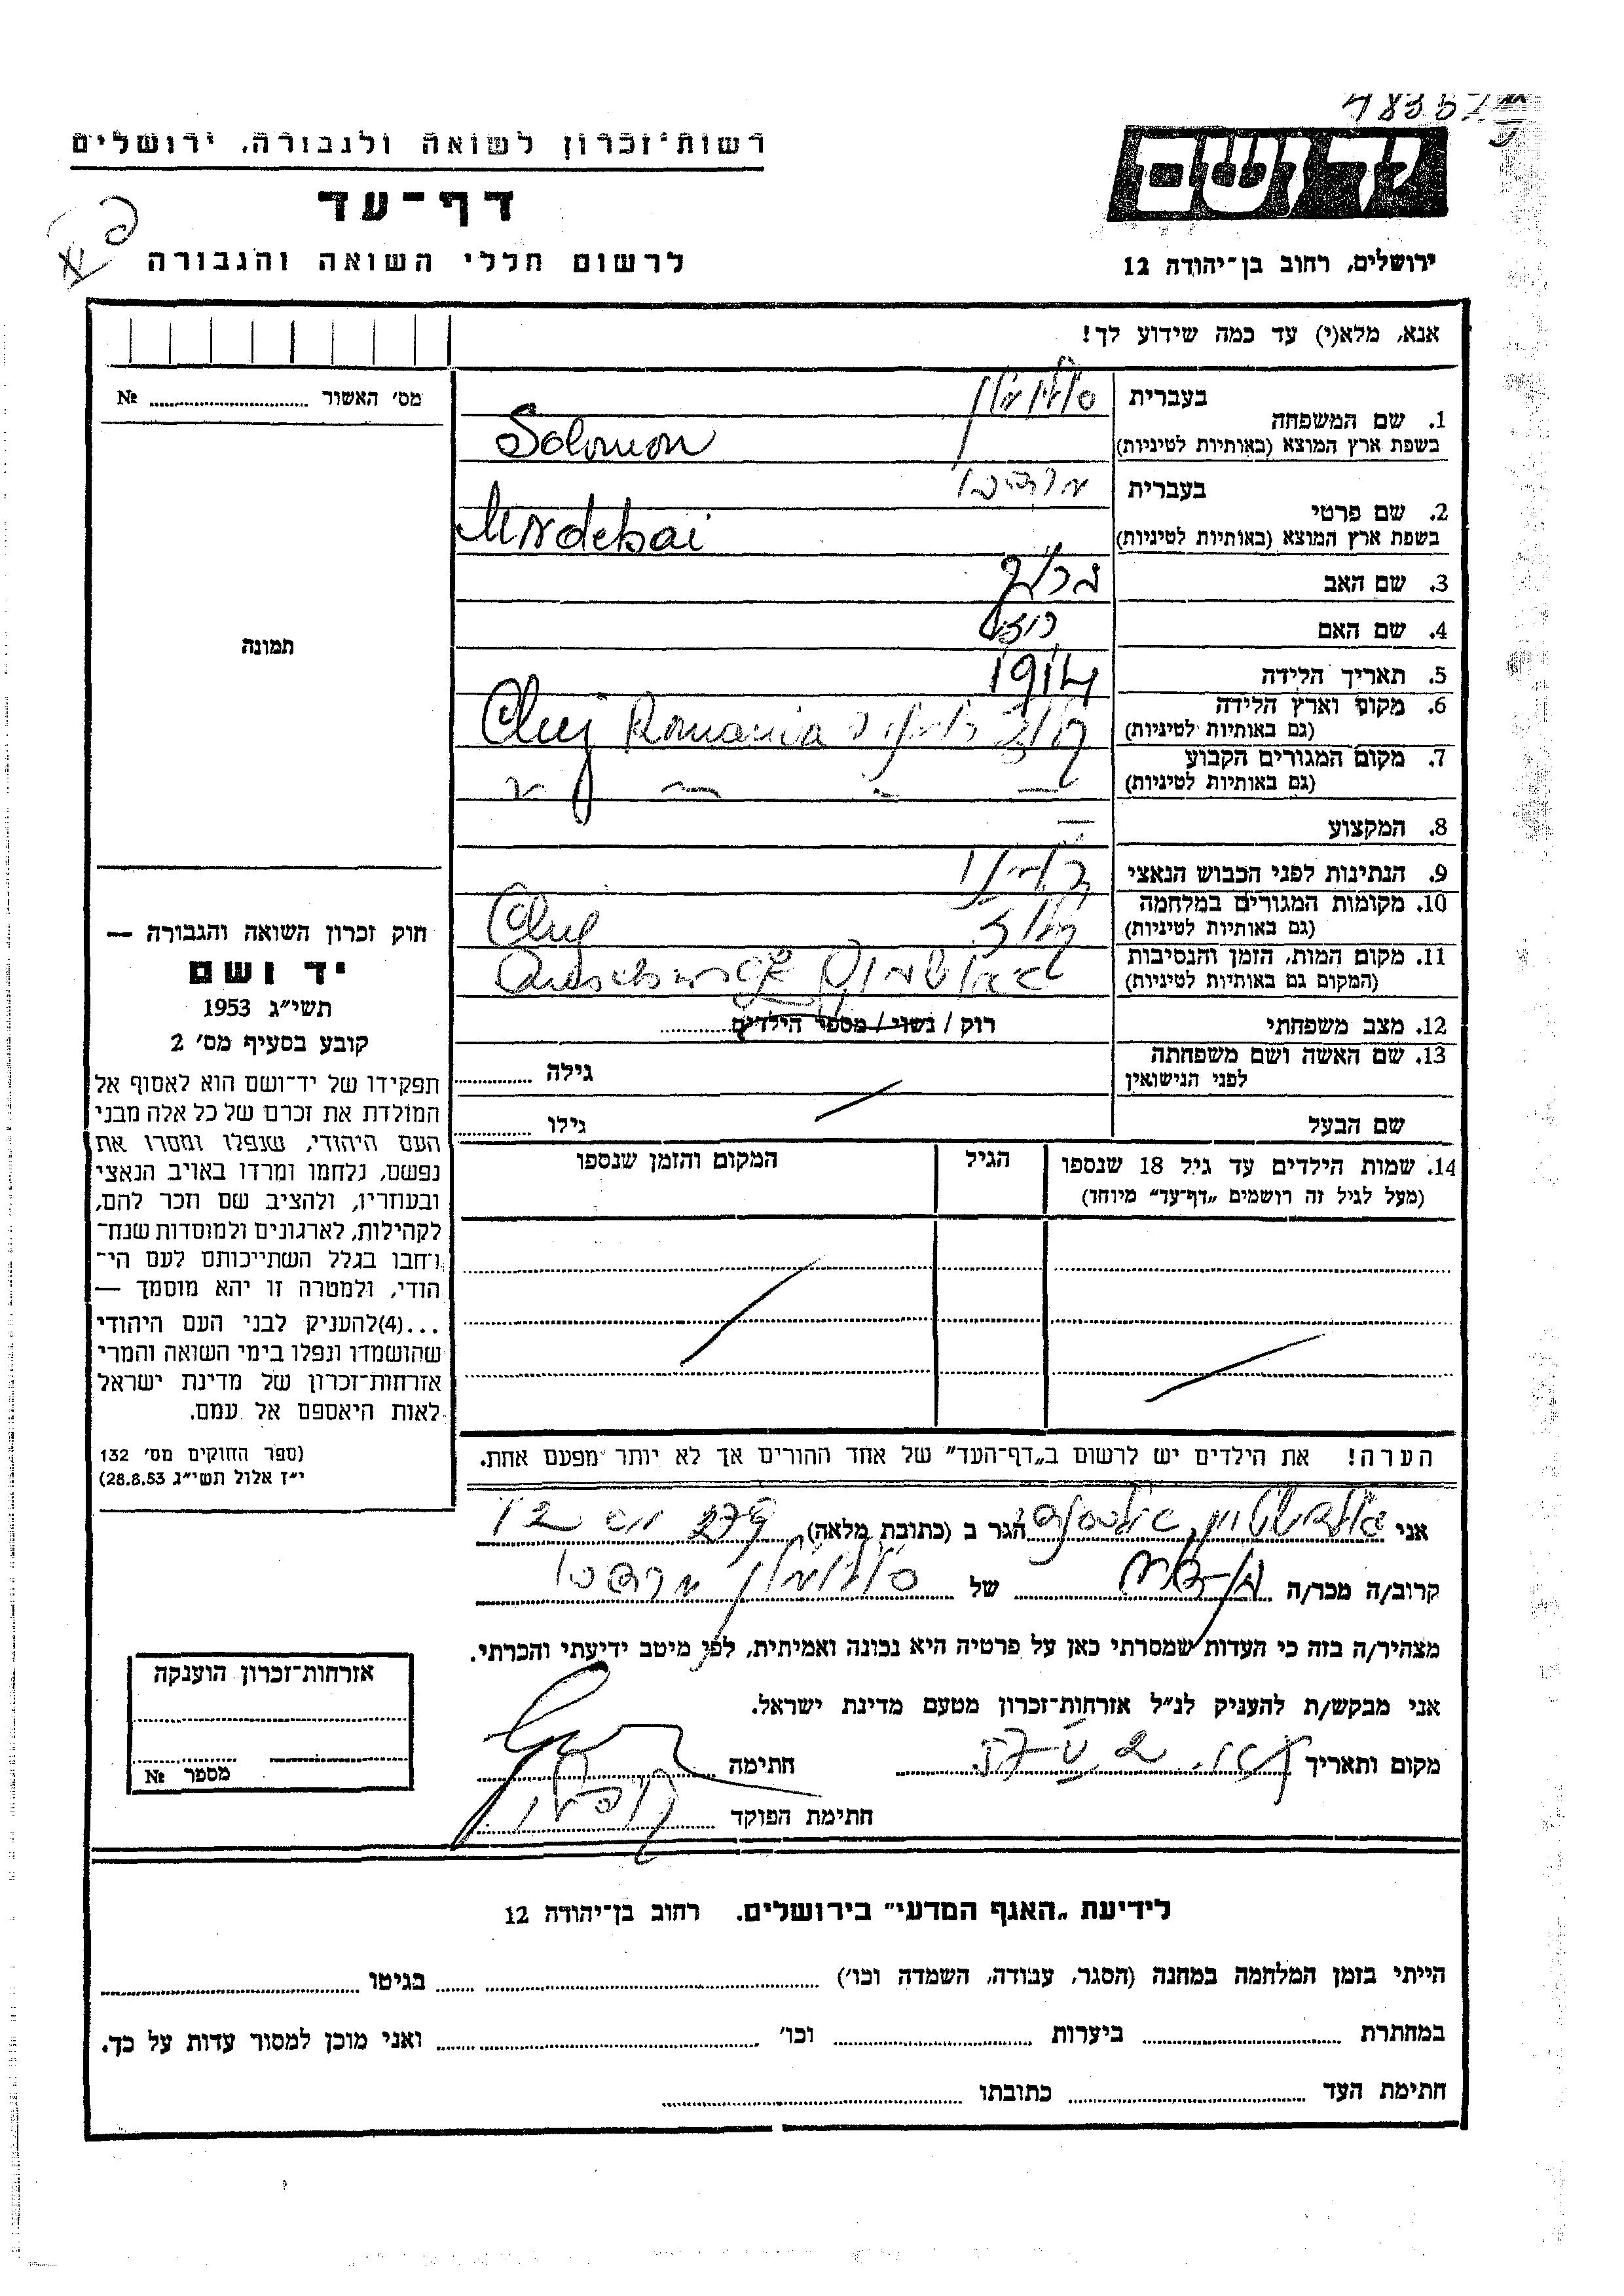 רשות־זכרון לשואה ולגבורה, ירושלים
דף־עד
לרשום חללי השואה והגבורה
יד ושם
ירושלים, רחוב בן־יהודה 12
אנא, מלא(י) עד כמה שידוע לך!
מס׳ האשור № 
תמונה
חוק זכרון השואה והגבורה —
יד ושם
תשי״ג 1953
קובע בסעיף מס׳ 2
תפקידו של יד־ושם הוא לאסוף אל
המולדת את זכרם של כל אלה מבני
העם היהודי, שנפלו ומסרו את
נפשם, נלחמו ומרדו באויב הנאצי
ובעוזריו, ולהציב שם וזכר להם,
לקהילות, לארגונים ולמוסדות שנח־
רחבו בגלל השתייכותם לעם הי־
הודי, ולמטרה זו יהא מוסמך —
...(4)להעניק לבני העם היהודי
שהושמדו ונפלו בימי השואה והמרי
אזרחות־זכרון של מדינת ישראל
לאות היאספם אל עמם.
(ספר החוקים מס׳ 132
י״ז אלול תשי״ג 28.8.53)
1. שם המשפחה בעברית סולומון
בשפת ארץ המוצא (באותיות לטיניות) Solomon
2. שם פרטי בעברית מרדכי
בשפת ארץ המוצא (באותיות לטיניות)
3. שם האב
4. שם האם רוזה
5. תאריך הלידה 1914
6. מקום וארץ הלידה (גם באותיות לטיניות) קלוז רומניה Cluj Romania
7. מקום המגורים הקבוע (גם באותיות לטיניות) — — — —
8. המקצוע —
9. הנתינות לפני הכבוש הנאצי רומני
10. מקומות המגורים במלחמה (גם באותיות לטיניות) קלוז Cluj
11. מקום המות, הזמן והנסיבות (המקום גם באותיות לטיניות)
12. מצב משפחתי רוק / נשוי / מספר הילדים
13. שם האשה ושם משפחתה לפני הנישואין גילה
שם הבעל גילו
14. שמות הילדים עד גיל 18 שנספו הגיל המקום והזמן שנספו
(מעל לגיל זה רושמים „דף־עד״ מיוחד)
הערה! את הילדים יש לרשום ב„דף־העד״ של אחד ההורים אך לא יותר מפעם אחת.
אני הגר ב (כתובת מלאה)
קרוב/ה מכר/ה של סולומון מרדכי
מצהיר/ה בזה כי העדות שמסרתי כאן על פרטיה היא נכונה ואמיתית, לפי מיטב ידיעתי והכרתי.
אני מבקש/ת להעניק לנ״ל אזרחות־זכרון מטעם מדינת ישראל.
מקום ותאריך חתימה
חתימת הפוקד
אזרחות־זכרון הוענקה
מספר №
לידיעת „האגף המדעי״ בירושלים. רחוב בן־יהודה 12
הייתי בזמן המלחמה במחנה (הסגר, עבודה, השמדה וכו׳) בגיטו
במחתרת ביערות וכו׳ ואני מוכן למסור עדות על כך.
חתימת העד כתובתו